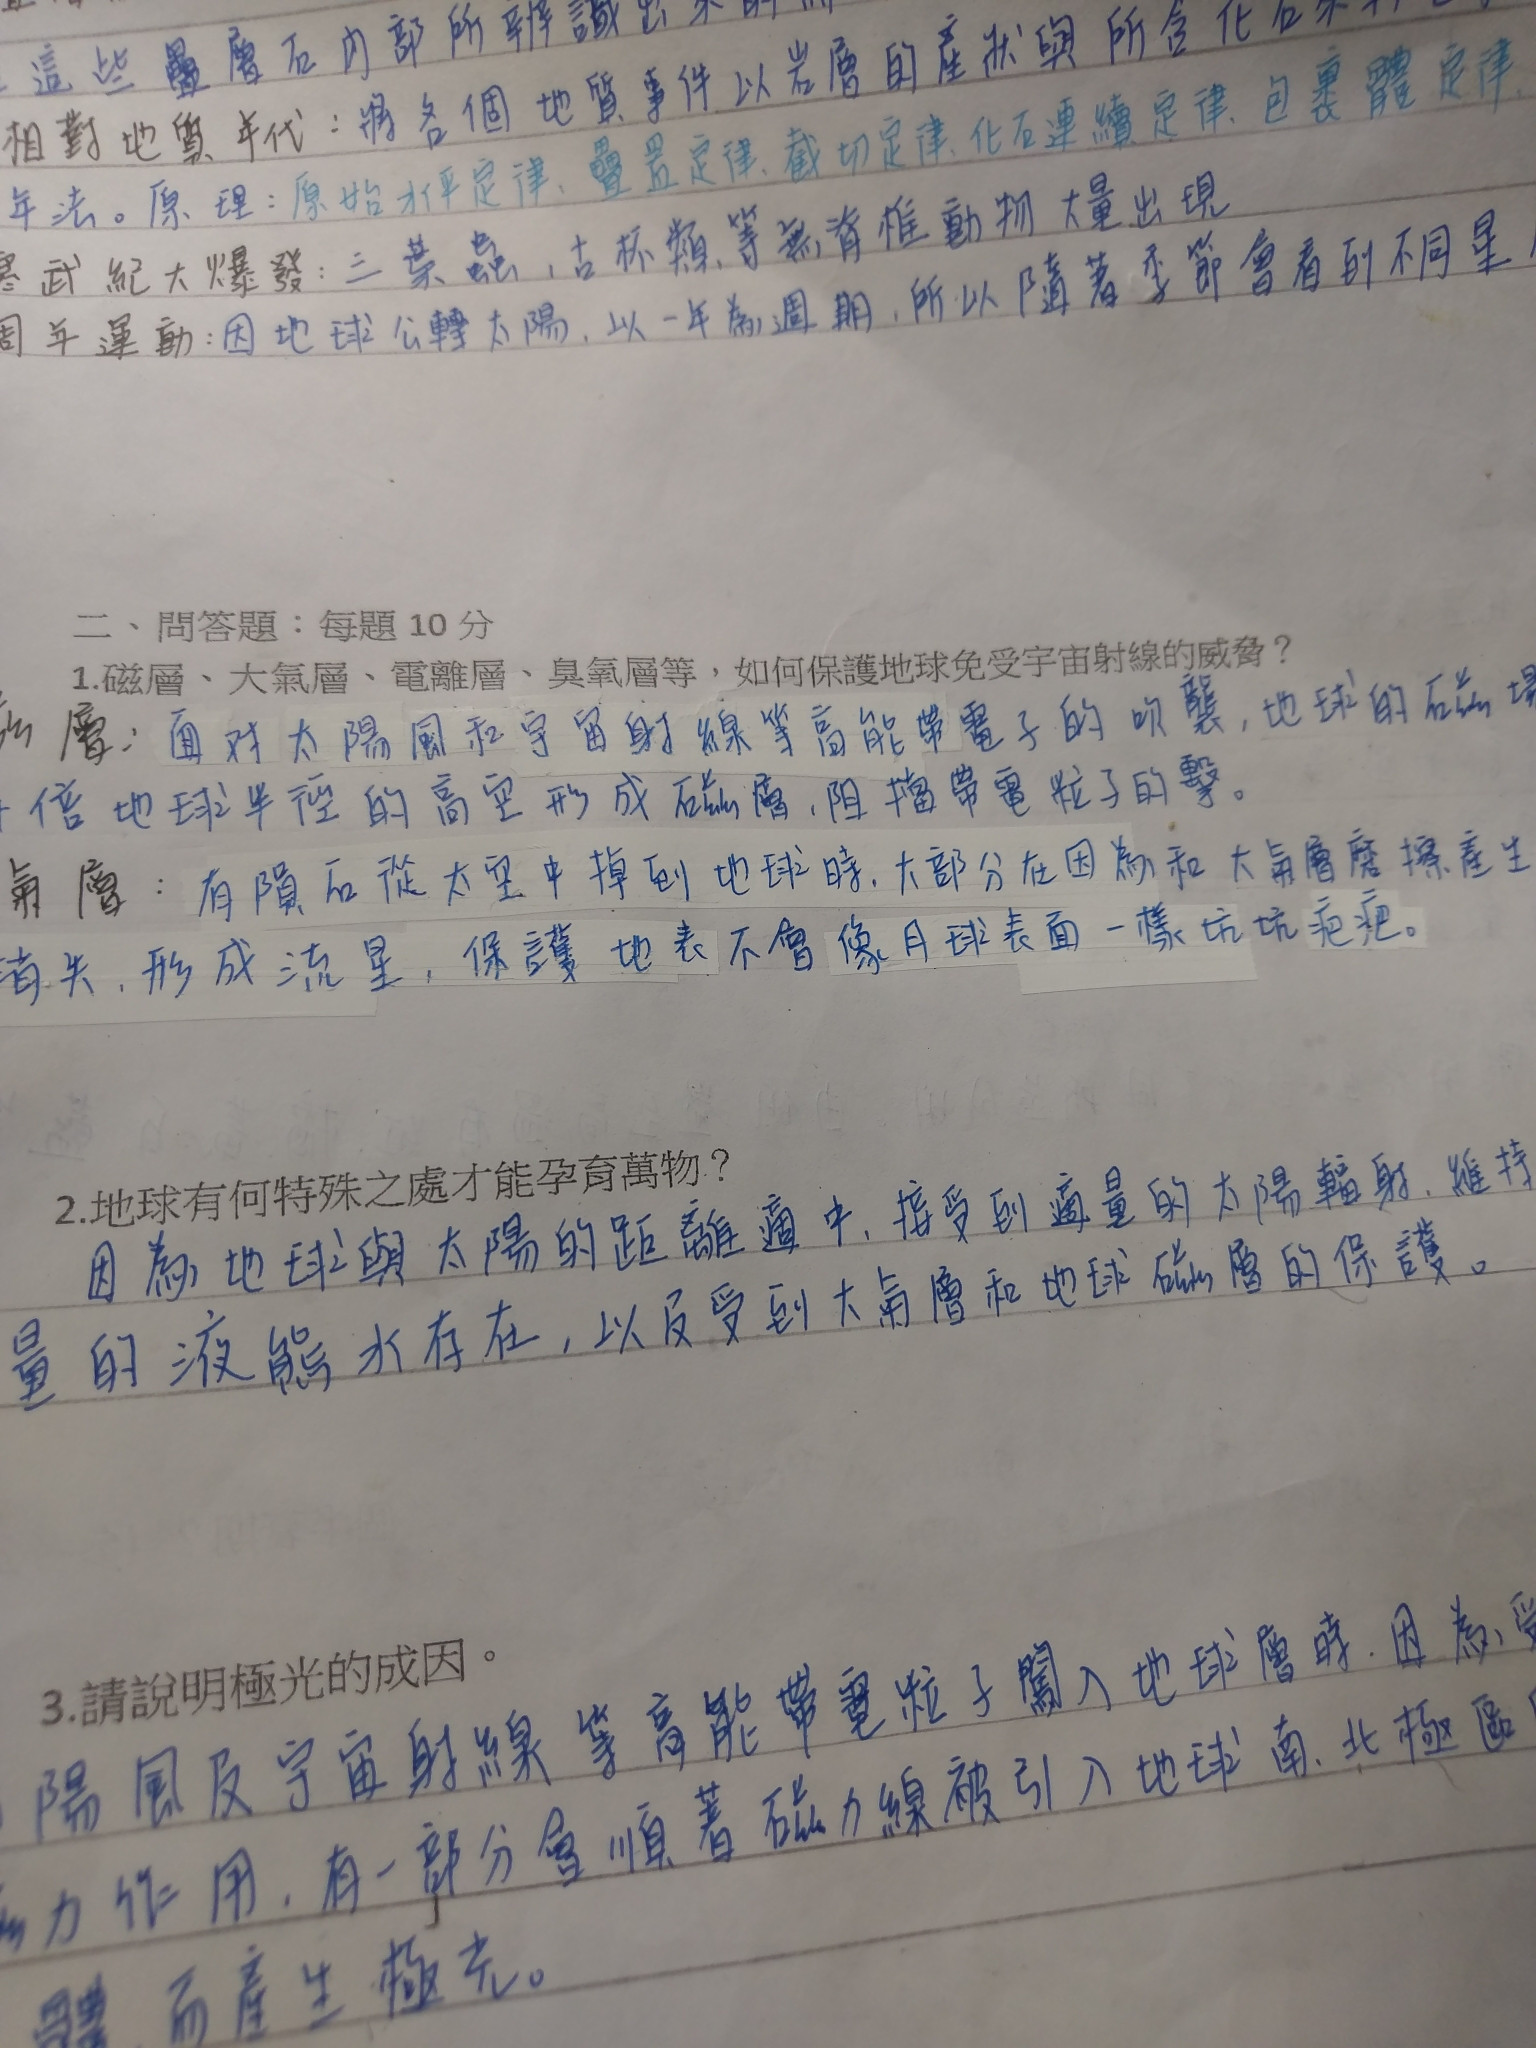 這些疊層石內部所辨識出來的
相對地質年代：將各個地質事件以岩層的產狀與所含化石來
年法。原理：原始水平定律、疊置定律、截切定律、化石連續定律、包裹體定律、
寒武紀大爆發：三葉蟲、古杯類、等無脊椎動物大量出現
周年運動：因地球公轉太陽，以一年為週期，所以隨著季節會看到不同星
二、問答題：每題 10 分
1.磁層、大氣層、電離層、臭氧層等，如何保護地球免受宇宙射線的威脅？
磁層：面對太陽風和宇宙射線等高能帶電子的吹襲，地球的磁場
倍地球半徑的高空形成磁層，阻擋帶電粒子的擊。
氣層：有隕石從太空中掉到地球時，大部分在因為和大氣層磨擦產生
消失，形成流星，保護地表不會像月球表面一樣坑坑疤疤。
2.地球有何特殊之處才能孕育萬物？
因為地球與太陽的距離適中，接受到適量的太陽輻射，維持
量的液態水存在，以及受到大氣層和地球磁層的保護。
3.請說明極光的成因。
陽風及宇宙射線等高能帶電粒子闖入地球層時，因為受
力作用，有一部分會順著磁力線被引入地球南、北極區
體，而產生極光。